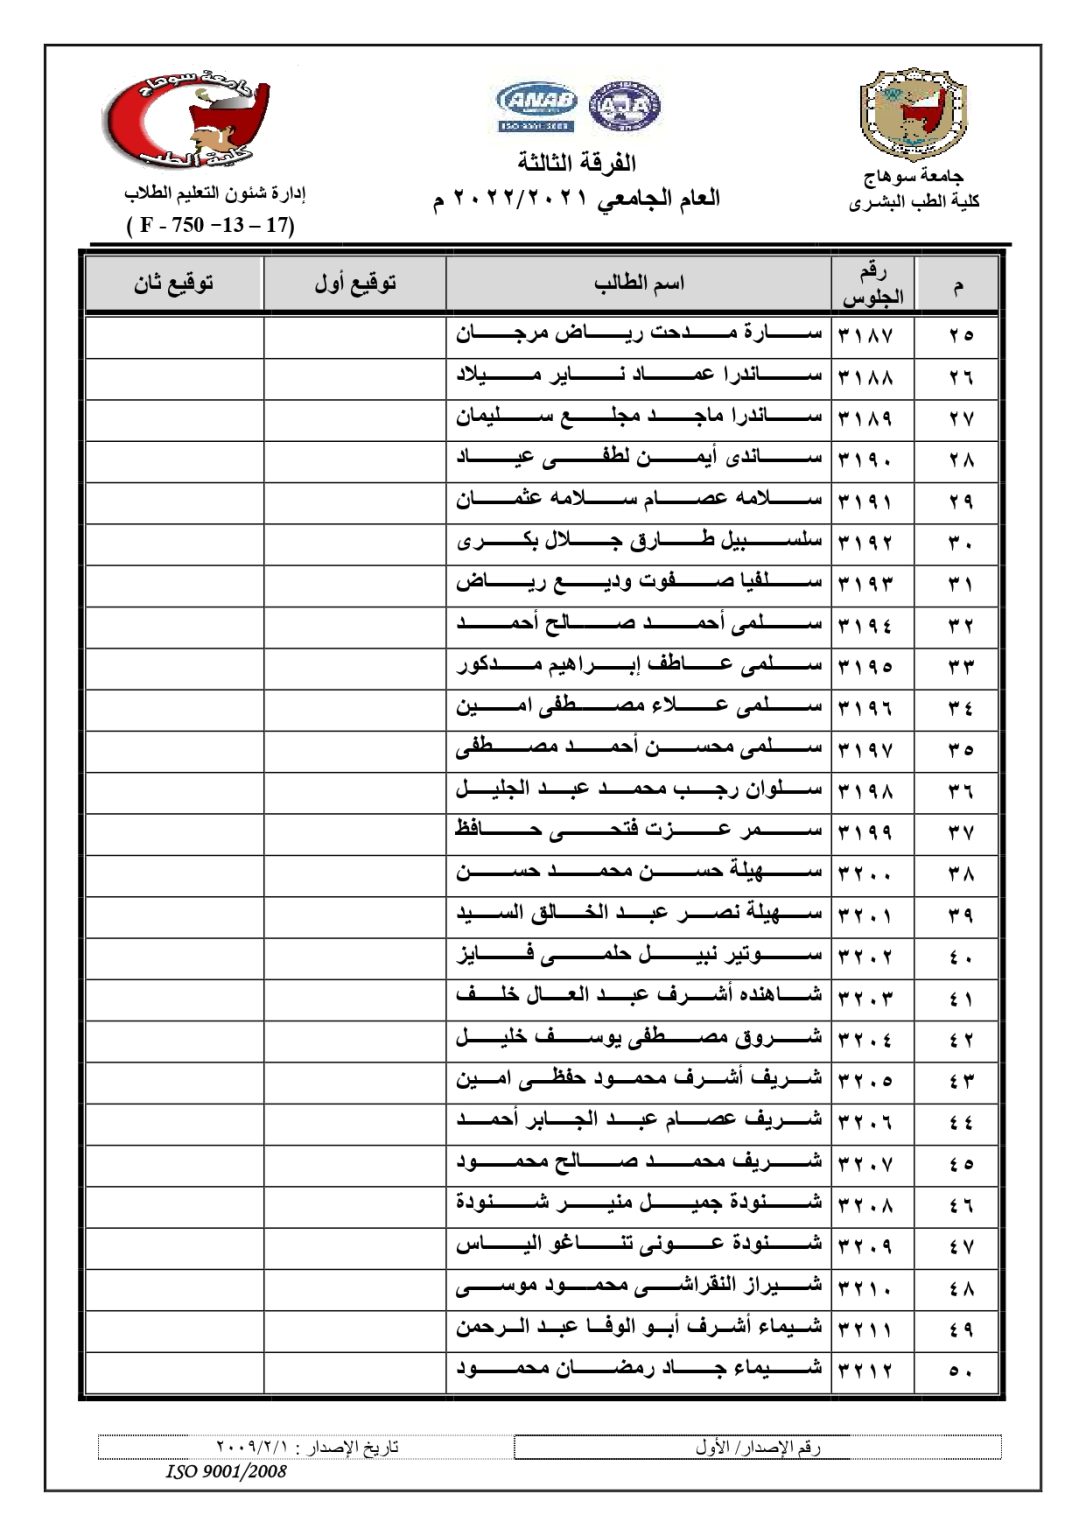 جامعة سوهاج
كلية الطب البشرى
ANAB
ISO 9001:2008
AJA
الفرقة الثالثة
العام الجامعي ٢٠٢٢/٢٠٢١ م
جامعة سوهاج
كلية الطب
إدارة شئون التعليم الطلاب
( F - 750 –13 – 17)
م رقم الجلوس اسم الطالب توقيع أول توقيع ثان
٢٥ ٣١٨٧ سارة مدحت رياض مرجان
٢٦ ٣١٨٨ ساندرا عماد ناير ميلاد
٢٧ ٣١٨٩ ساندرا ماجد مجلع سليمان
٢٨ ٣١٩٠ ساندى أيمن لطفى عياد
٢٩ ٣١٩١ سلامه عصام سلامه عثمان
٣٠ ٣١٩٢ سلسبيل طارق جلال بكرى
٣١ ٣١٩٣ سلفيا صفوت وديع رياض
٣٢ ٣١٩٤ سلمى أحمد صالح أحمد
٣٣ ٣١٩٥ سلمى عاطف إبراهيم مدكور
٣٤ ٣١٩٦ سلمى علاء مصطفى امين
٣٥ ٣١٩٧ سلمى محسن أحمد مصطفى
٣٦ ٣١٩٨ سلوان رجب محمد عبد الجليل
٣٧ ٣١٩٩ سمر عزت فتحى حافظ
٣٨ ٣٢٠٠ سهيلة حسن محمد حسن
٣٩ ٣٢٠١ سهيلة نصر عبد الخالق السيد
٤٠ ٣٢٠٢ سوتير نبيل حلمى فايز
٤١ ٣٢٠٣ شاهنده أشرف عبد العال خلف
٤٢ ٣٢٠٤ شروق مصطفى يوسف خليل
٤٣ ٣٢٠٥ شريف أشرف محمود حفظى امين
٤٤ ٣٢٠٦ شريف عصام عبد الجابر أحمد
٤٥ ٣٢٠٧ شريف محمد صالح محمود
٤٦ ٣٢٠٨ شنودة جميل منير شنودة
٤٧ ٣٢٠٩ شنودة عونى تناغو الياس
٤٨ ٣٢١٠ شيراز النقراشى محمود موسى
٤٩ ٣٢١١ شيماء أشرف أبو الوفا عبد الرحمن
٥٠ ٣٢١٢ شيماء جاد رمضان محمود
رقم الإصدار/ الأول تاريخ الإصدار : ٢٠٠٩/٢/١
ISO 9001/2008